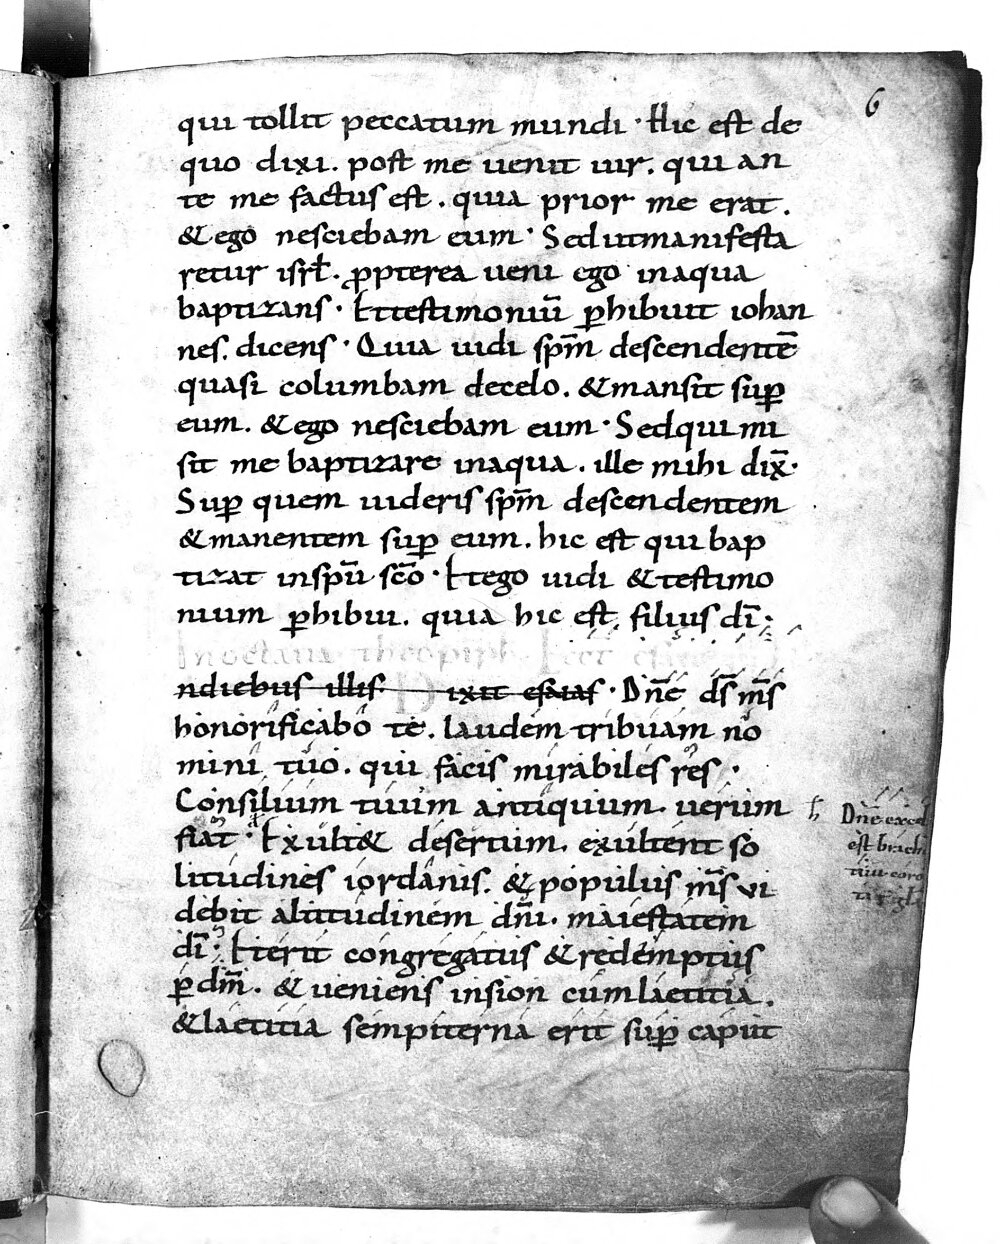 6
qui tollit peccatum mundi · Hic est de
quo dixi. post me uenit uir. qui an
te me factus est. quia prior me erat.
& ego nesciebam eum · Sed utmanifesta
retur isrł. ppterea ueni ego inaqua
baptizans · Ettestimoniū phibuit iohan
nes. dicens · Quia uidi spm̄ descendentē
quasi columbam decelo. & mansit sup
eum. & ego nesciebam eum · Sedqui mi
sit me baptizare inaqua. ille mihi dix̄·
Sup quem uideris spm̄ descendentem
& manentem sup eum. hic est qui bap
tizat inspū scō · Etego uidi & testimo
nium phibui. quia hic est filius dī·
In octaua theophi
ndiebus illis ixit esaias · Dn̄e ds̄ ms̄
honorificabo te. laudem tribuam no
mini tuo. qui facis mirabiles res ·
Consilium tuum antiquum. uerum
fiat · Exult& desertum. exultent so
litudines iordanis. & populus ms̄ vi
debit altitudinem dn̄i. maiestatem
dī; Eterit congregatus & redemptus
p dm̄. & ueniens insion cumlaetitia.
& laetitia sempiterna erit sup caput
h Dn̄e excel
est brach
tuu coro